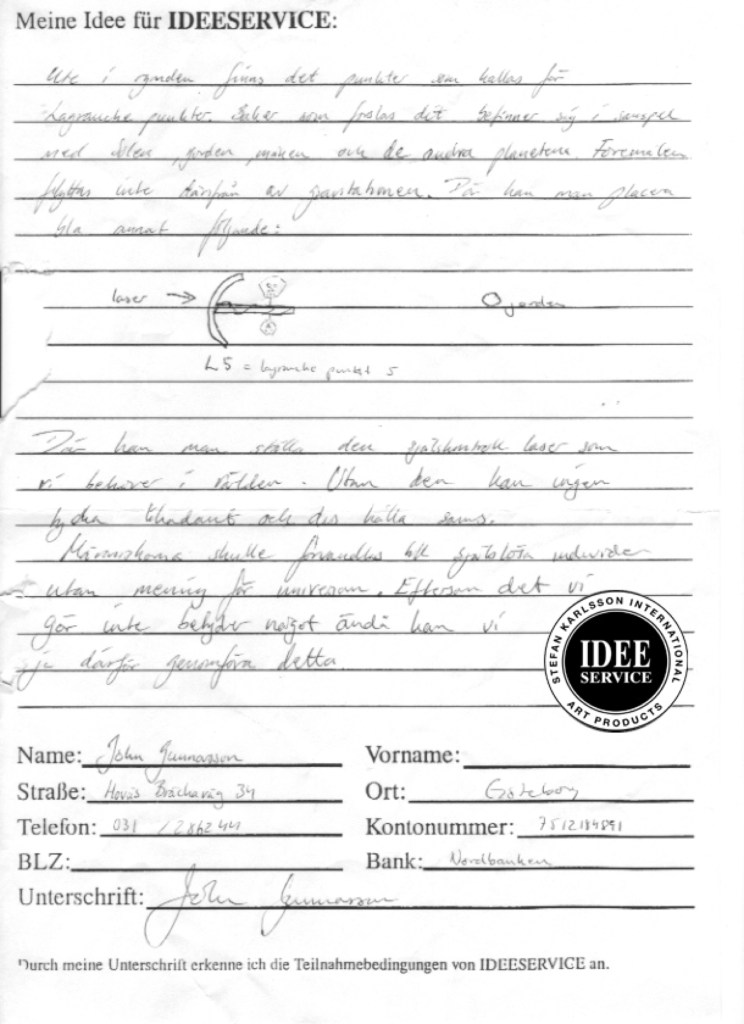 Meine Idee für IDEESERVICE:
Ute i rymden finns det punkter som kallas för
Lagranche punkter. Saker som frslas dit befinner sig i samspel
med solen, jorden, månen och de andra planeterna. Föremålen
flyttas inte därifrån av gravitationen. Där kan man placera
bla annat följande:
laser → jorden
L5 = lagranche punkt 5
Där kan man ställa den själskontroll laser som
vi behöver i världen. Utan den kan ingen
lyda och hålla sams.
Människorna skulle förvandlas till själslösa individer
utan mening för universum. Eftersom det vi
gör inte betyder något ändå kan vi
ju därför genomföra detta.
STEFAN KARLSSON INTERNATIONAL
IDEE
SERVICE
ART PRODUCTS
Name: John Gunnarsson Vorname:
Straße: Hovås 34 Ort: Göteborg
Telefon: 031 / 286244 Kontonummer: 7512184891
BLZ: Bank: Nordbanken
Unterschrift: John Gunnarsson
Durch meine Unterschrift erkenne ich die Teilnahmebedingungen von IDEESERVICE an.